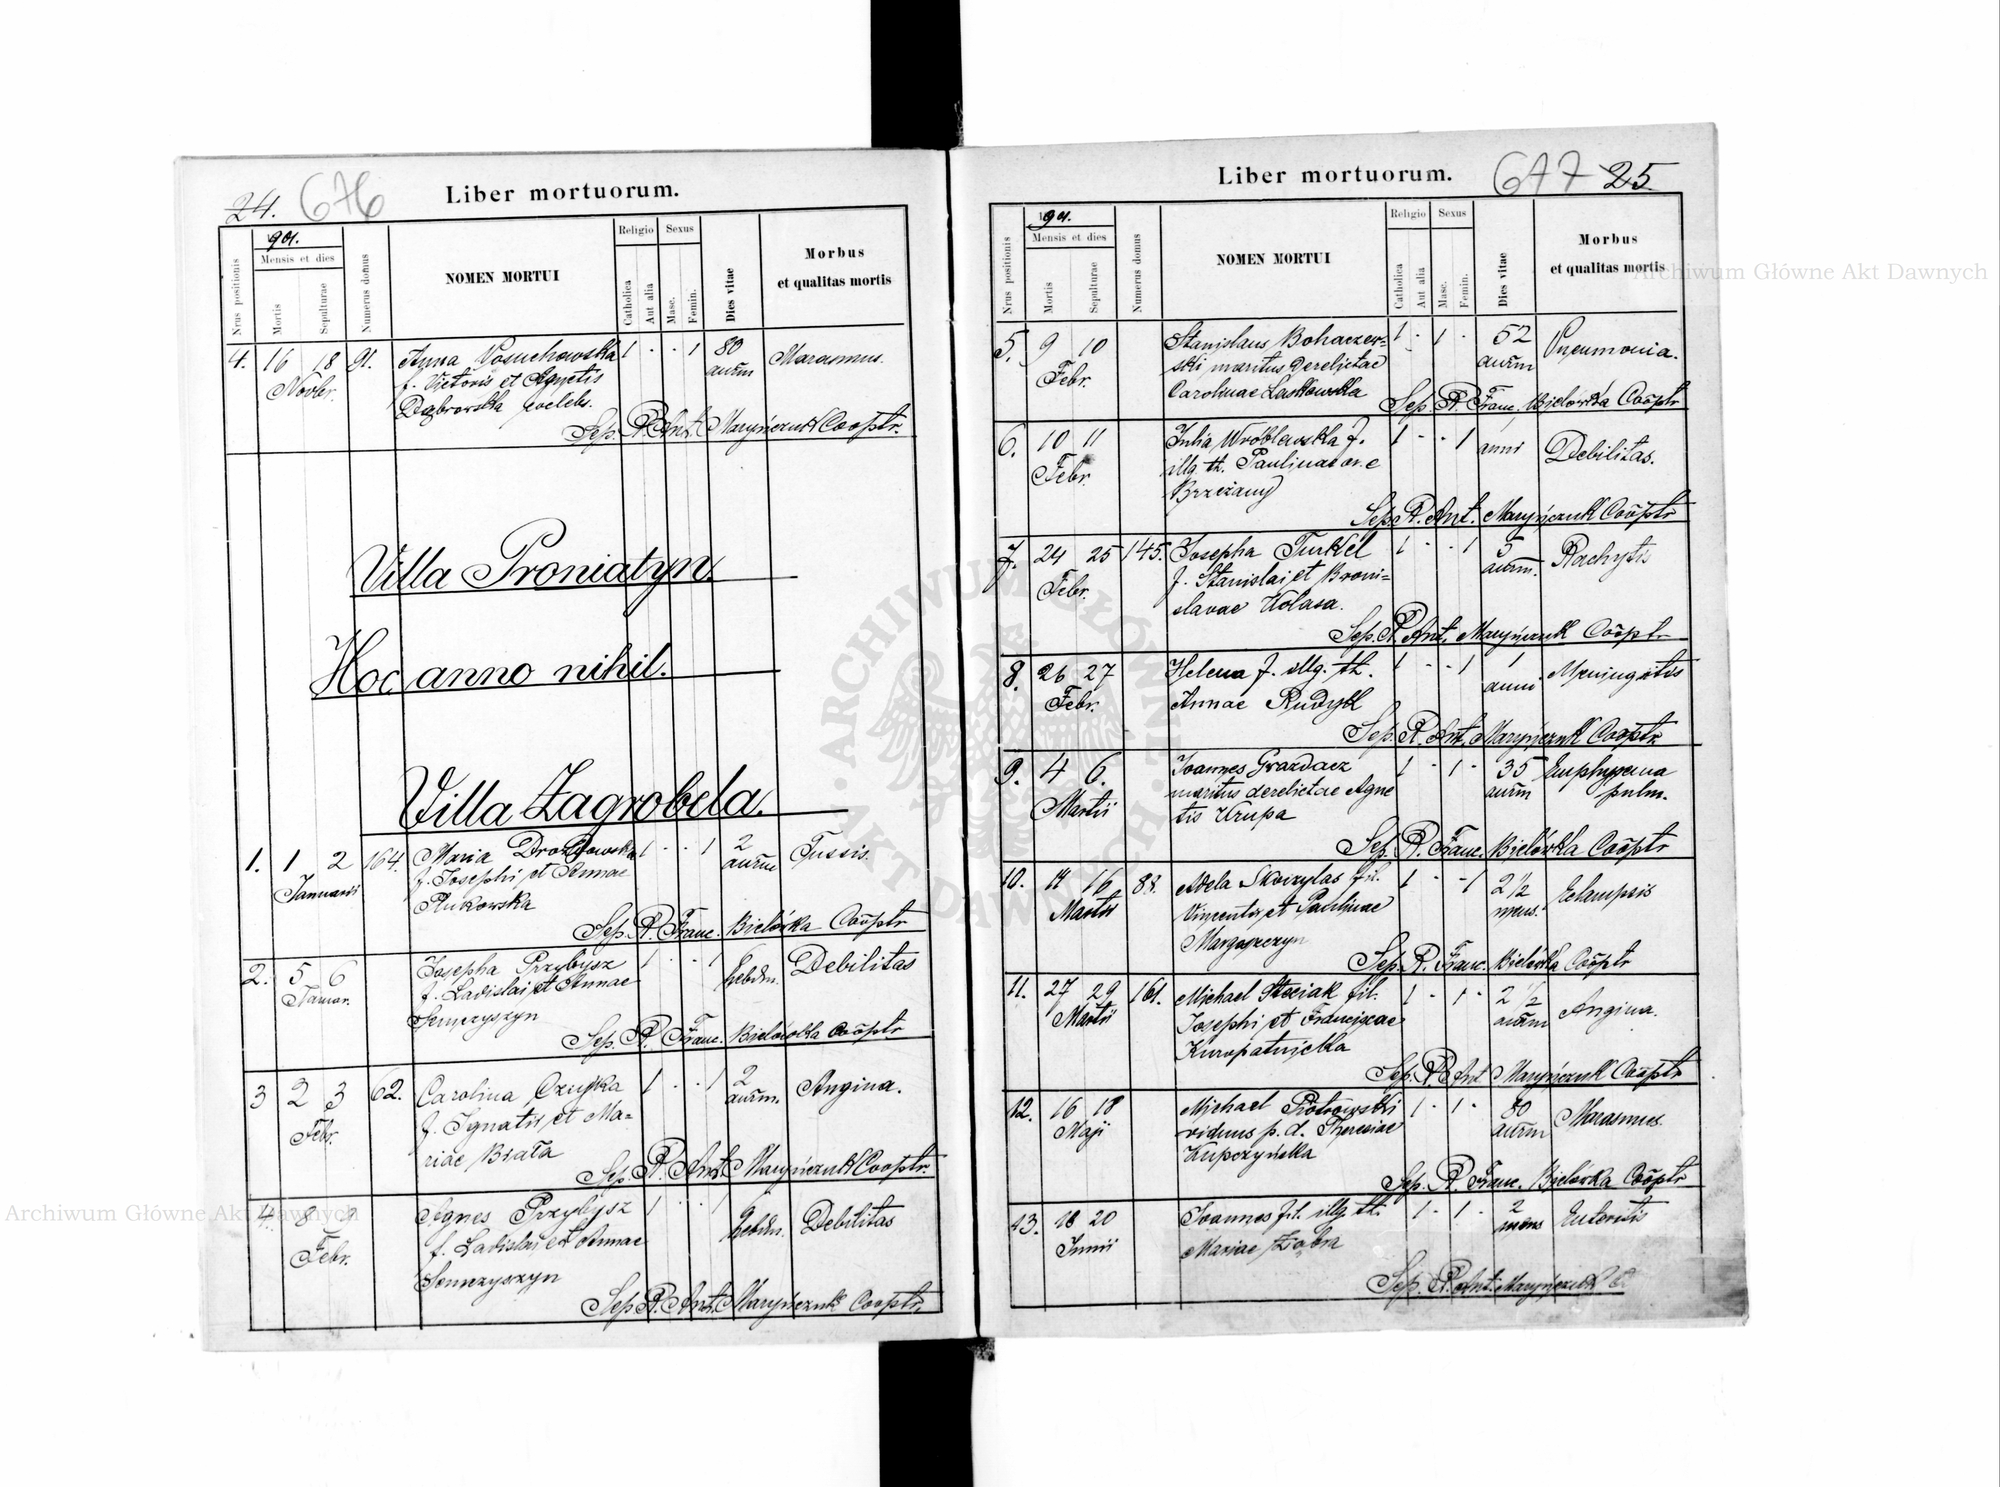 24. 676
Liber mortuorum.
901.
Nrus positionis
Mensis et dies
Mortis
Sepulturae
Numerus domus
NOMEN MORTUI
Religio
Catholica
Aut alia
Sexus
Masc.
Femin.
Dies vitae
Morbus
et qualitas mortis
4. 16 18 91. Anna Vosuchowska 1 · · 1 80 Marasmus.
Novbr. f. Victoris et Agnetis annm
Dąbrowska coelebs.
Sep. R. Ant. Maryńczuk Cooptr.
Villa Proniatyn.
Hoc anno nihil.
Villa Zagrobela.
1. 1 2 164. Maria Drozdowska 1 · · 1 2 Tussis.
Januarii f. Josephi et Annae annm
Rukowska
Sep. R. Franc. Bielówka Cooptr
2. 5 6 Josepha Przybysz 1 · · 1
Januar. f. Ladislai et Annae hebdm. Debilitas
Semczyszyn
Sep. R. Franc. Bielówka Cooptr
3 2 3 62. Carolina 1 · · 1 2 Angina.
Febr. f. Ignatii et Ma= annm.
riae Biała
Sep. R. Ant. Maryńczuk Cooptr.
4. 8 9 Agnes Przybysz 1 · · 1 Debilitas
Febr. f. Ladislai et Annae hebdm.
Semczyszyn
Sep. R. Ant. Maryńczuk Cooptr.
Liber mortuorum.
677 25
901.
Nrus positionis
Mensis et dies
Mortis
Sepulturae
Numerus domus
NOMEN MORTUI
Religio
Catholica
Aut alia
Sexus
Masc.
Femin.
Dies vitae
Morbus
et qualitas mortis
5. 9 10 Stanislaus Bohaczew= 1 · 1 · 52 Pneumonia.
Febr. ski maritus derelictae annm
Carolinae Laskowska
Sep. R. Franc. Bielówka Cooptr
6. 10 11 Julia Wróblewska f. 1 · · 1 anni Debilitas.
Febr. illg. th. Paulinae or. e
Brzeżany
Sep. R. Ant. Maryńczuk Cooptr
7. 24 25 145. Josepha Turkel 1 · · 1 5 Rachytis
Febr. f. Stanislai et Broni= annm.
slavae Kolasa.
Sep. R. Ant. Maryńczuk Cooptr
8. 26 27 Helena f. illg. th. 1 · · 1 1 Meningitis
Febr. Annae Rudyk anni
Sep. R. Ant. Maryńczuk Cooptr.
9. 4 6. Joannes Grazdacz 1 · 1 · 35 Emphysema
Martii maritus derelictae Agne annm pulm.
tis Krupa
Sep. R. Franc. Bielówka Cooptr
10. 14 16 88. Adela Skoczylas fil. 1 · · 1 2 1/2 Eclampsis
Martii Vincentii et Paulinae mens.
Margoszczyn
Sep. R. Franc. Bielówka Cooptr
11. 27 29 161. Michael Steciak fil. 1 · 1 · 2 1/2 Angina.
Martii Josephi et Franciscae annm
Kuropatnicka
Sep. R. Ant Maryńczuk Cooptr
12. 16 18 Michael Piotrowski 1 · 1 · 80 Marasmus.
Maji viduus p. d. Theresiae annm
Kupczyńska
Sep. R. Franc. Bielówka Cooptr
13. 18 20 Joannes fil. illg. th. 1 · 1 · 2 Enteritis
Junii Mariae mens
Sep. R. Ant. Maryńczuk C.
Archiwum Główne Akt Dawnych
Archiwum Główne Akt Dawnych
ARCHIWUM GŁÓWNE AKT DAWNYCH